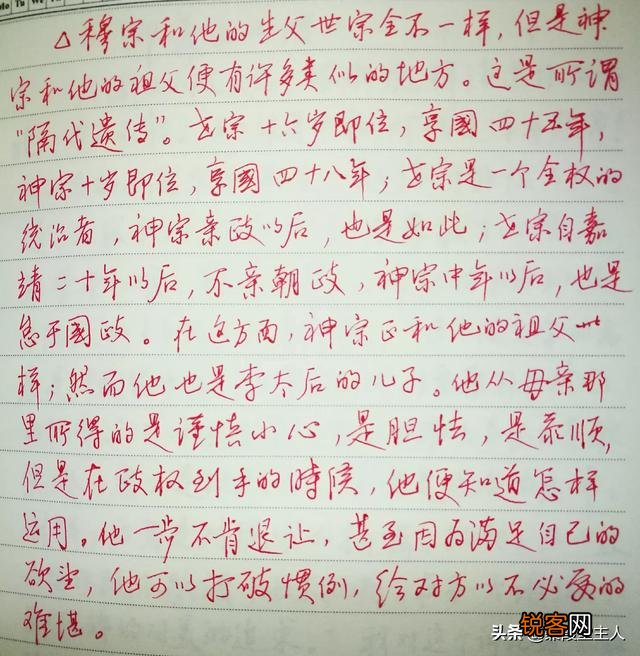 Mo Tu We
△ 穆宗和他的生父世宗全不一样，但是神
宗和他的祖父便有许多类似的地方。这是所谓
“隔代遗传”。世宗十六岁即位，享國四十五年，
神宗十岁即位，享國四十八年；世宗是一个全权的
统治者，神宗亲政以后，也是如此；世宗自嘉
靖二十年以后，不亲朝政，神宗中年以后，也是
怠于國政。在这方面，神宗正和他的祖父一
样；然而他也是李太后的儿子。他从母亲那
里所得的是谨慎小心，是胆怯，是恭顺，
但是在政权到手的時候，他便知道怎样
运用。他一步不肯退让，甚至因为满足自己的
欲望，他可以打破惯例，给对方以不必要的
难堪。
锐客网
头条 主人